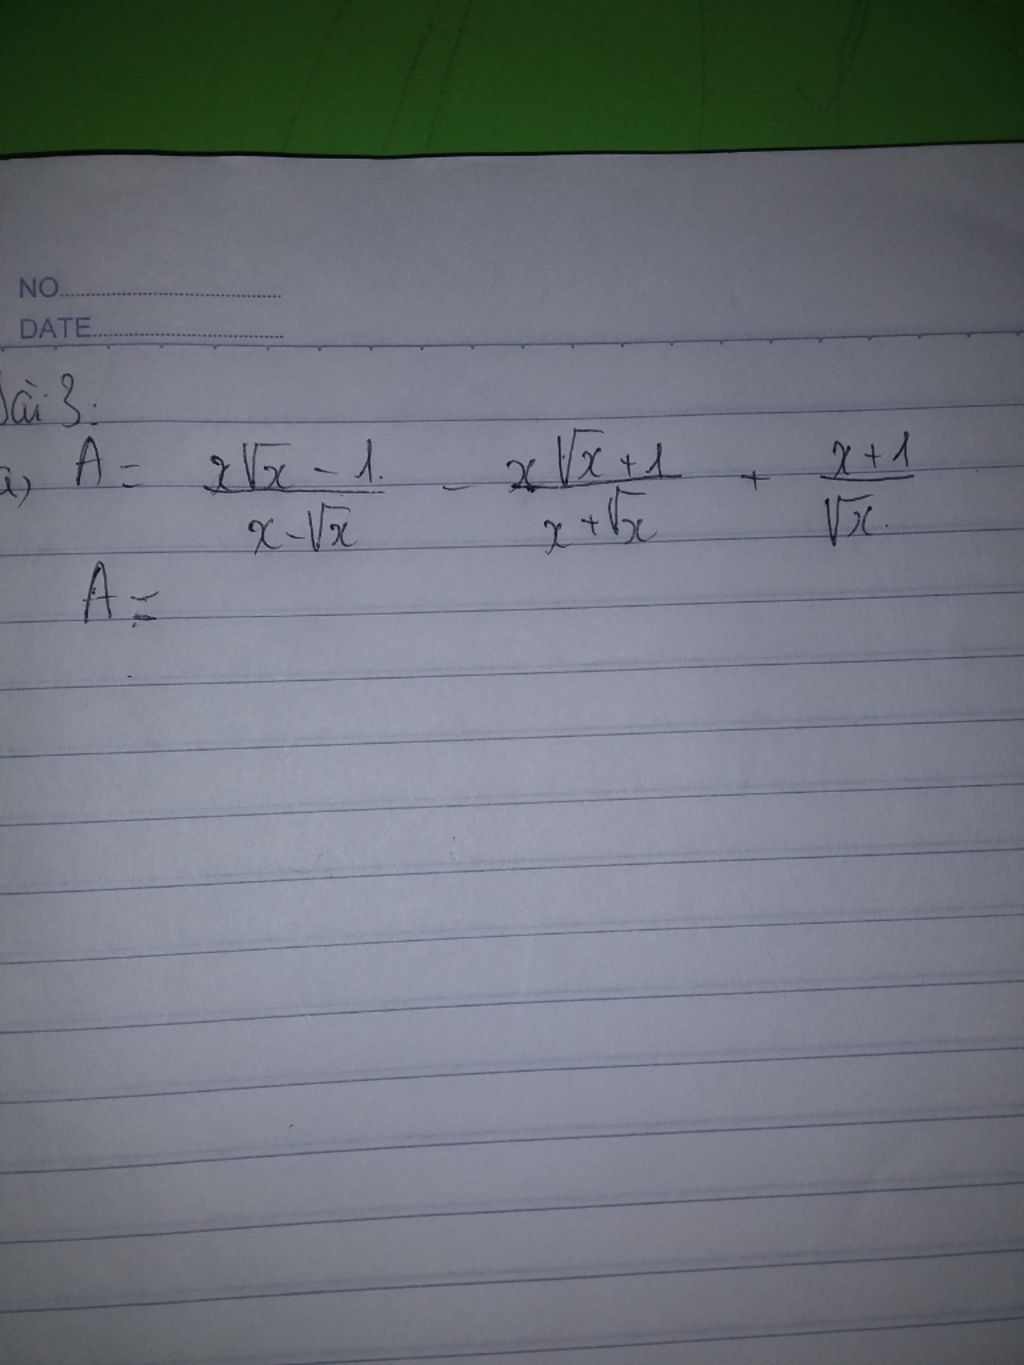 NO
DATE
Bài 3:
a) A = (x√x - 1)/(x - √x) - (x√x + 1)/(x + √x) + (x + 1)/√x.
A =